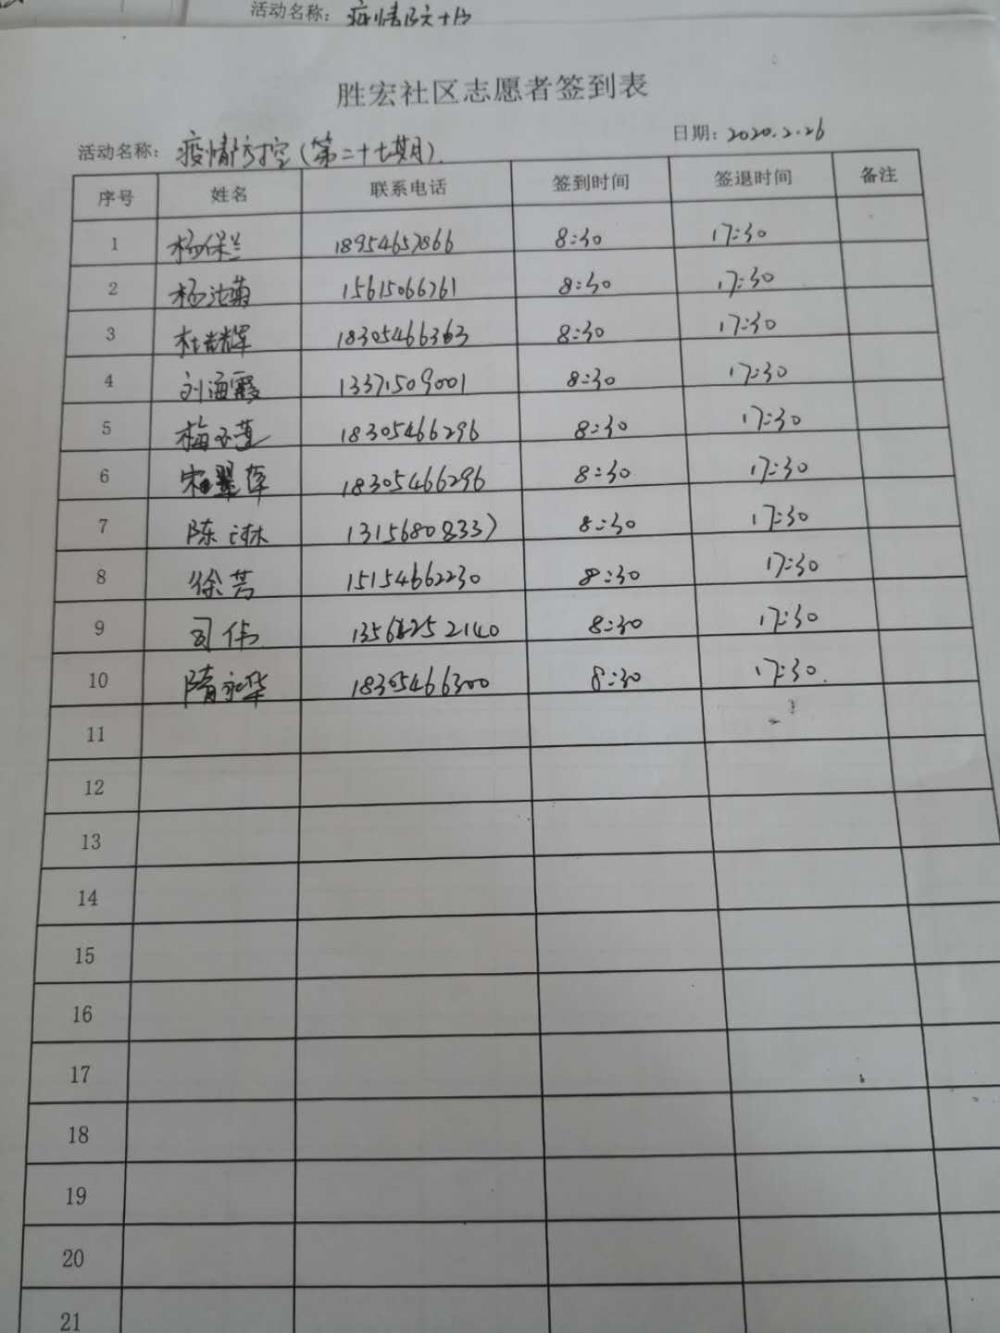 活动名称：疫情防
胜宏社区志愿者签到表
活动名称：疫情防控(第二十七期) 日期：2020.2.26
序号 姓名 联系电话 签到时间 签退时间 备注
1 杨保兰 18954657866 8:30 17:30
2 杨池菊 15615066761 8:30 17:30
3 杜 辉 18305466363 8:30 17:30
4 刘海霞 13371509001 8:30 17:30
5 梅玉莲 18305466296 8:30 17:30
6 宋翠萍 18305466296 8:30 17:30
7 陈 琳 13156808337 8:30 17:30
8 徐芳 15154662230 8:30 17:30
9 司伟 2140 8:30 17:30
10 隋永华 18305466300 8:30 17:30
11
12
13
14
15
16
17
18
19
20
21